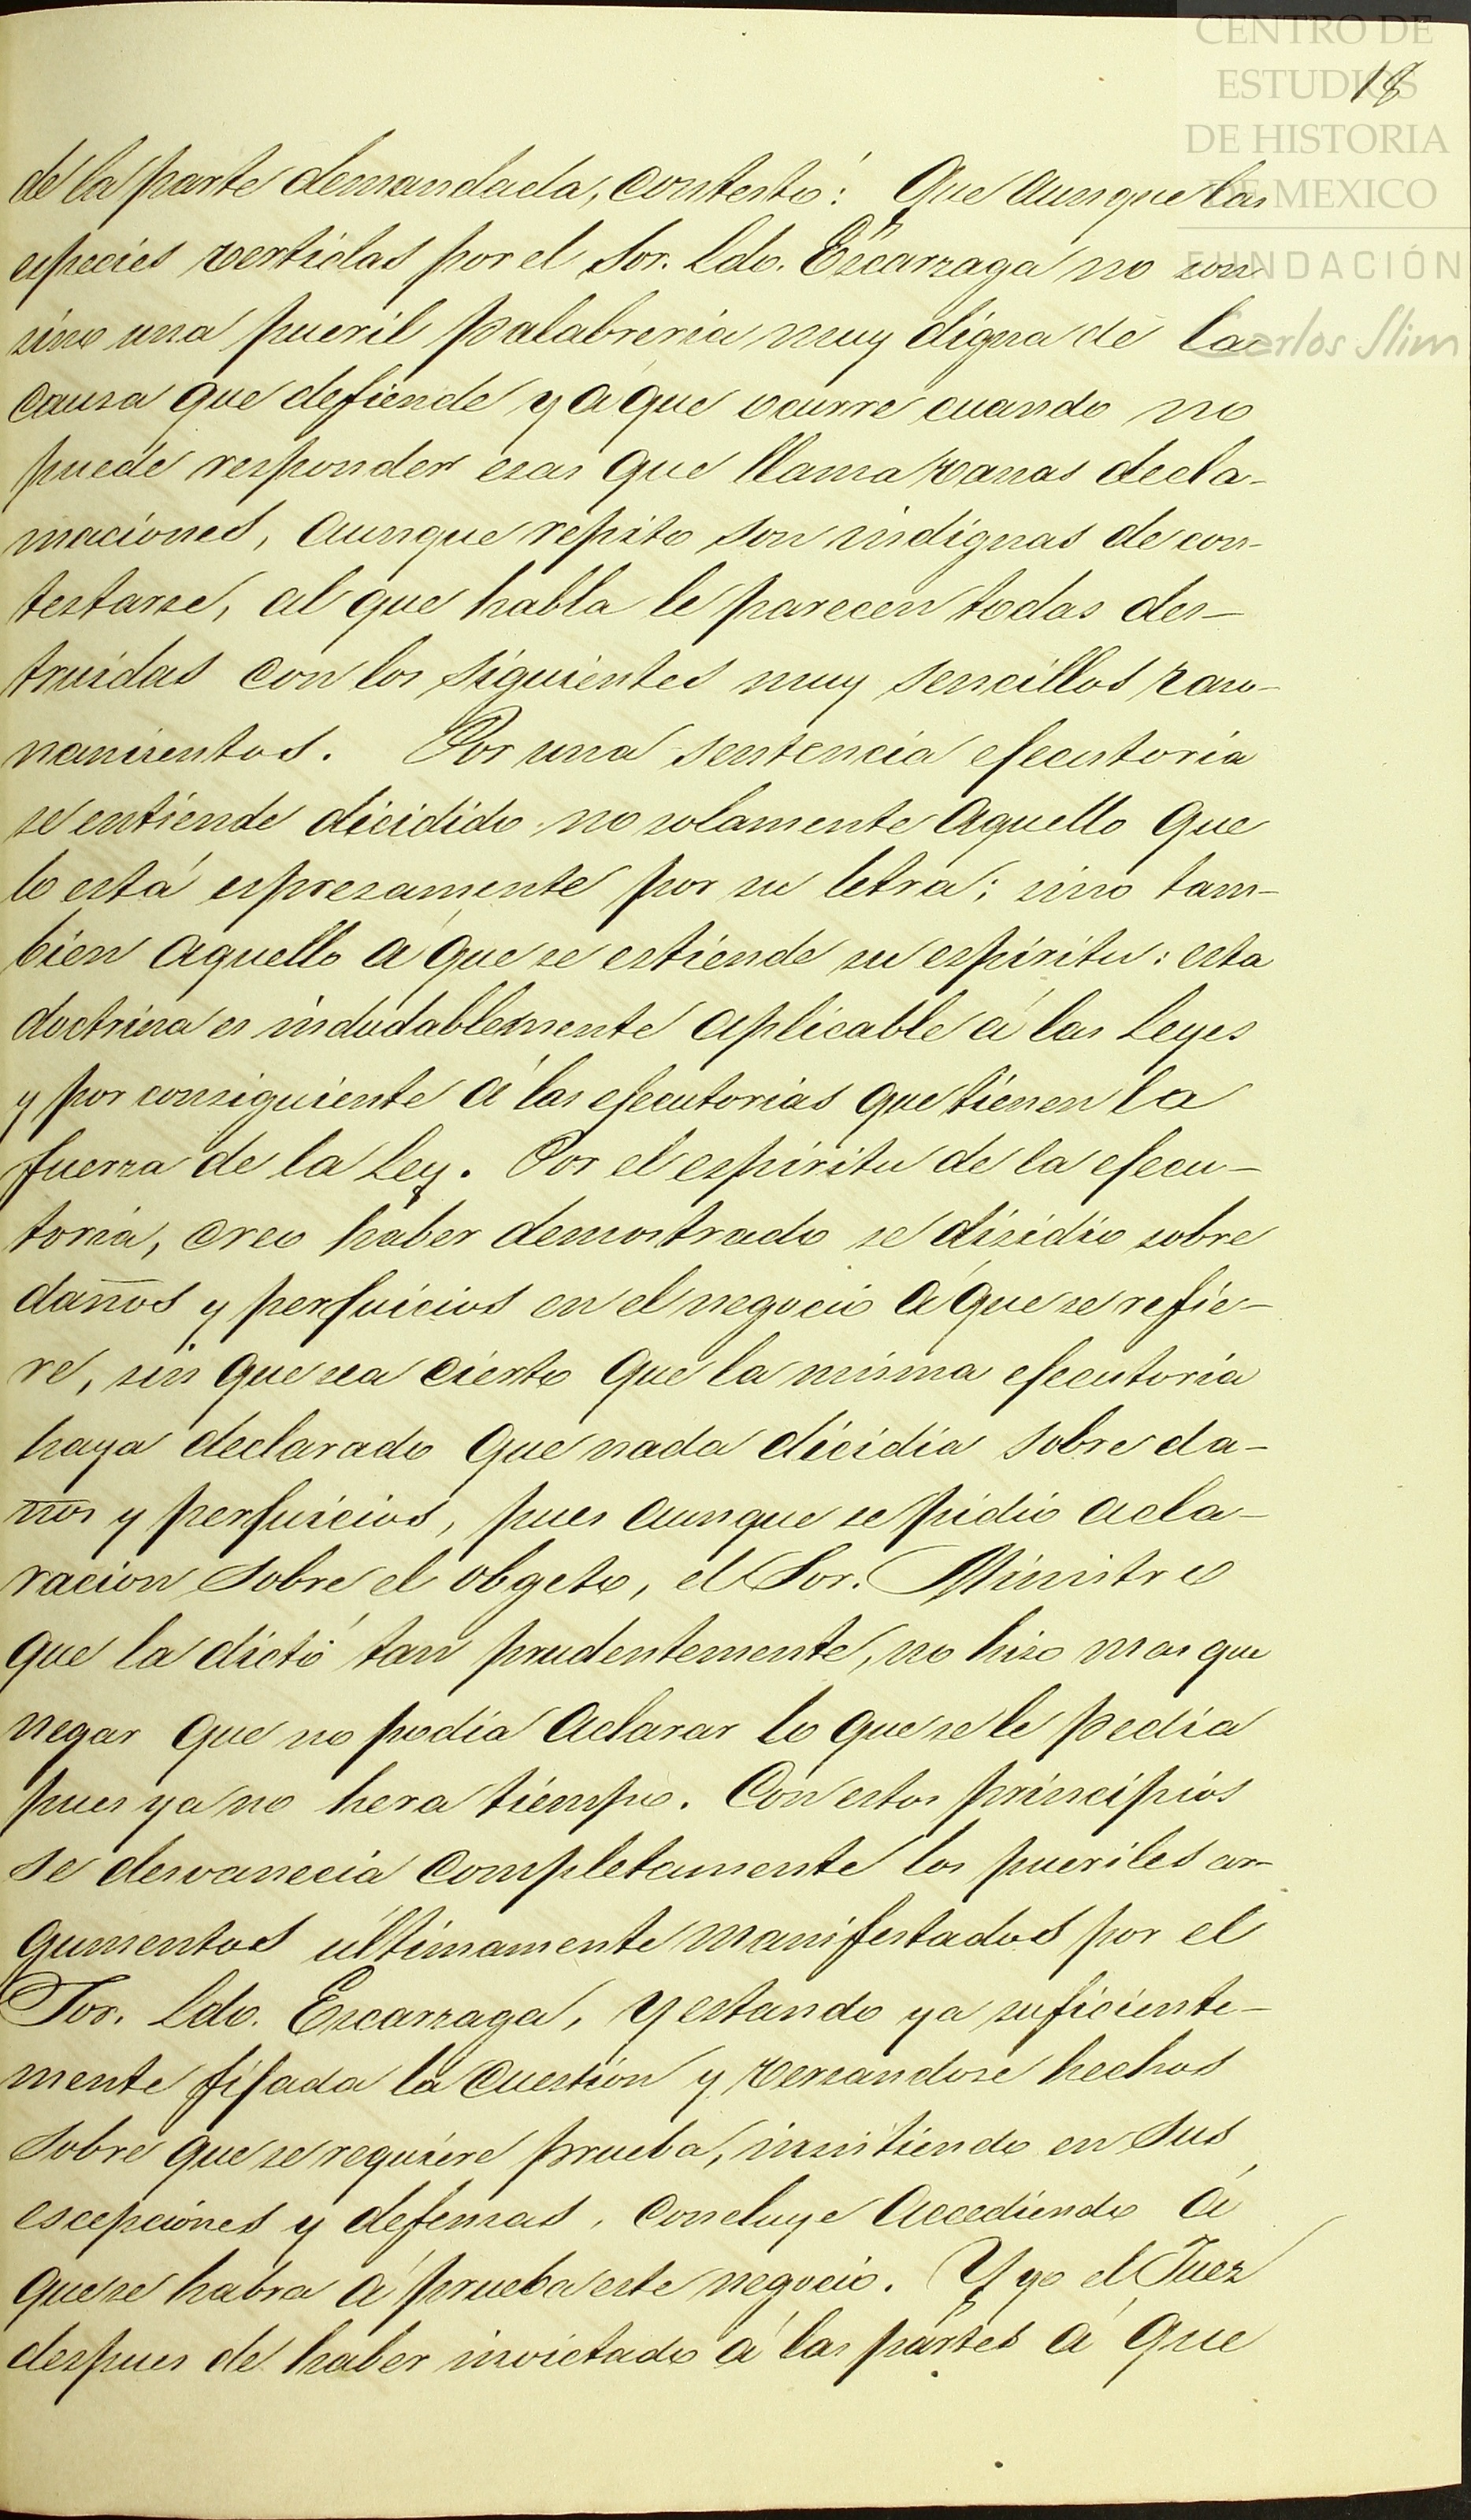 CENTRO DE
ESTUDIOS
DE HISTORIA
DE MEXICO
FUNDACIÓN
Carlos Slim
18
de la parte demandada, contestó: Que aunque las
especies vertidas por el Sor. Ldo. Escarzaga no son
sino una pueril palabreria muy digna de la
causa que defiende y á que ocurre cuando no
puede responder esas que llama vanas decla-
maciones, aunque repito son indignas de con-
testarse, al que habla le parecen todas des-
truidas con los siguientes muy sencillos razo-
namientos. Por una sentencia ejecutoria
se entiende dicidido no solamente aquello que
lo está espresamente por su letra; sino tam-
bien aquello á que se estiende su espiritu: esta
doctrina es indudablemente aplicable á las Leyes
y por consiguiente á las ejecutorias que tienen la
fuerza de la Ley. Por el espiritu de la ejecu-
toria, creo haber demostrado se disidio sobre
daños y perjuicios en el negocio á que se refie-
re, sin que sea cierto que la misma ejecutoria
haya declarado que nada dicidia sobre da-
ños y perjuicios, pues aunque se pidio acla-
racion sobre el obgeto, el Sor. Ministro
que la dictó tan prudentemente, no hizo mas que
negar que no podia aclarar lo que se le pedia
pues ya no hera tiempo. Con estos principios
se desvanecia completamente los pueriles ar-
gumentos ultimamente manifestados por el
Sor. Ldo. Escarzaga, y estando ya suficiente-
mente fijada la cuestion y versandose hechos
sobre que se requiere prueba, insistiendo en sus
escepciones y defensas, concluye accediendo á
que se habra á prueba este negocio. Y yo el Juez
despues de haber invictado á las partes á que